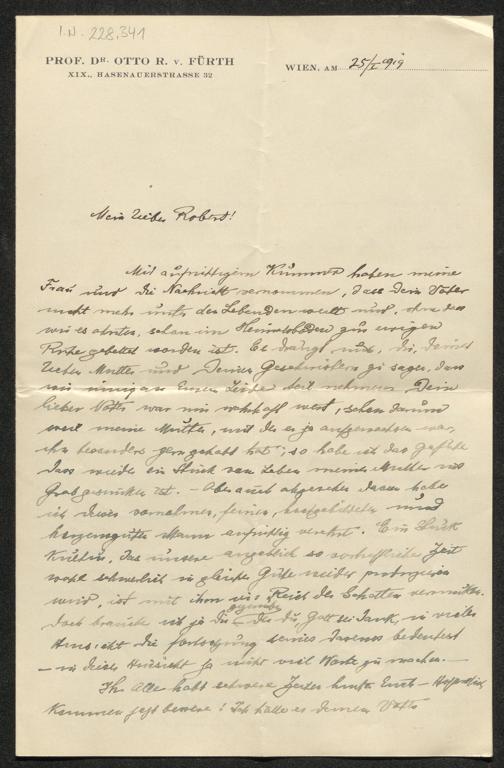 I.N. 228.341
PROF. DR. OTTO R. v. FÜRTH
XIX., HASENAUERSTRASSE 32
WIEN, AM 25/I 1919
Mein lieber Robert!
Mit aufrichtigem Kummer haben meine
Frau und die Nachricht vernommen, dass Dein Vater
nicht mehr unter den Lebenden weilt und, ohne dass
wir es ahnten, schon im Heimatboden zur ewigen
Ruhe gebettet worden ist. Es drängt mich, Dir, Deiner
lieben Mutter und Deinen Geschwistern zu sagen, dass
wir innigen Anteil nehmen. Dein
lieber Vater war mir wert, schon darum
weil meine Mutter, mit der er ja aufgewachsen war,
ihn besonders gern gehabt hat; so habe ich das Gefühl
dass wieder ein Stück vom Leben meiner Mutter ins
Grab gesunken ist. – Aber auch abgesehen davon habe
ich diesen vornehmen, feinen, hochgebildeten und
herzensguten Mann aufrichtig verehrt. Ein Stück
Kultur, das unsere angeblich so vortreffliche Zeit
wohl schwerlich in gleicher Güte wieder produzieren
wird, ist mit ihm ins Reich der Schatten
Doch brauche ich ja Dir gegenüber – der du, Gott sei Dank, in vieler
Hinsicht die Fortsetzung seines Daseins bedeutest
– in dieser Hinsicht ja nicht viel Worte zu machen. –
Ihr Alle habt schwere Zeiten hinter Euch – Hoffentlich
kommen jetzt bessere! Ich hätte es Deinem Vater